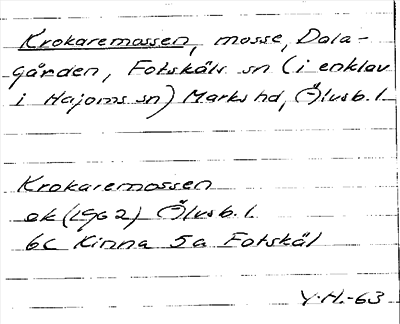 Krokaremossen, mosse, Dala-
gården, Fotskäls sn (i enklav
i Hajoms sn) Marks hd, Älvsb. l.
Krokaremossen
ek (1962) Älvsb. l.
6c Kinna 5a Fotskäl
Y.H.-63